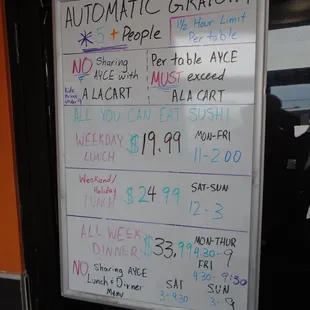 AUTOMATIC GRATUITY
*5 + People
1½ Hour Limit
Per table
NO Sharing
AYCE with
A LA CART
Per table AYCE
MUST exceed
A LA CART
ALL YOU CAN EAT SUSHI
WEEKDAY
LUNCH
$19.99
MON-FRI
11-2:00
Weekend/
Holiday
LUNCH
$24.99
SAT-SUN
12-3
ALL WEEK
DINNER
$33.99
MON-THUR
4:30-9
FRI
4:30-9:30
NO Sharing AYCE
Lunch & Dinner
Menu
SAT
3-9:30
SUN
3-9